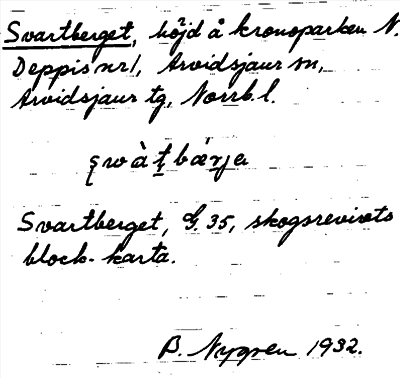 Svartberget, höjd å kronoparken N.
Deppis nr 1, Arvidsjaur sn,
Arvidsjaur tg, Norrb. l.
Svartberget, G. 35, skogsrevirets
block-karta.
B. Nygren 1932.